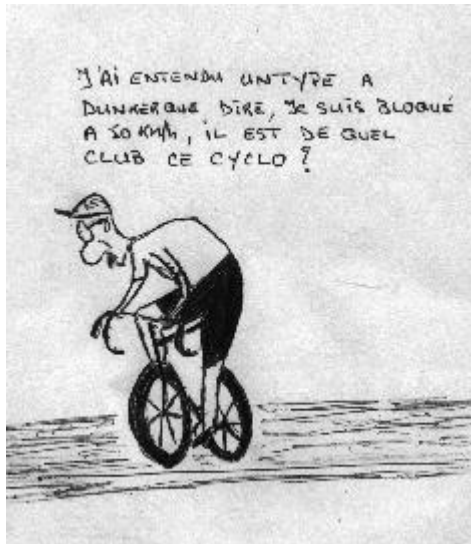 J'AI ENTENDU UN TYPE A
DUNKERQUE DIRE, JE SUIS BLOQUÉ
A 50 KM/h, IL EST DE QUEL
CLUB CE CYCLO ?